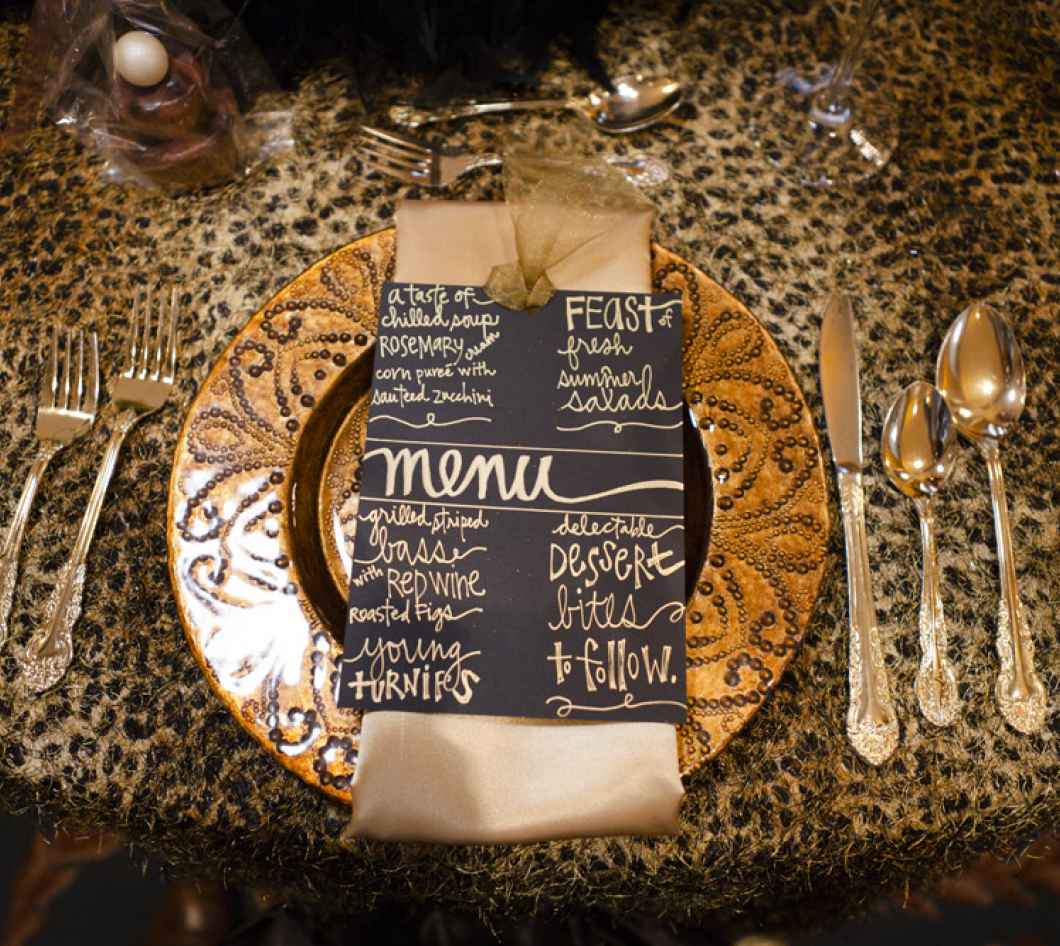 a taste of
chilled soup
ROSEMARY cream
corn pureé with
sauteed zucchini
FEAST of
fresh
summer
salads
menu
grilled striped
bass
with RED WINE
ROASTED Figs
young
tURNiPS
delectable
DESSERT
bites
to follow.